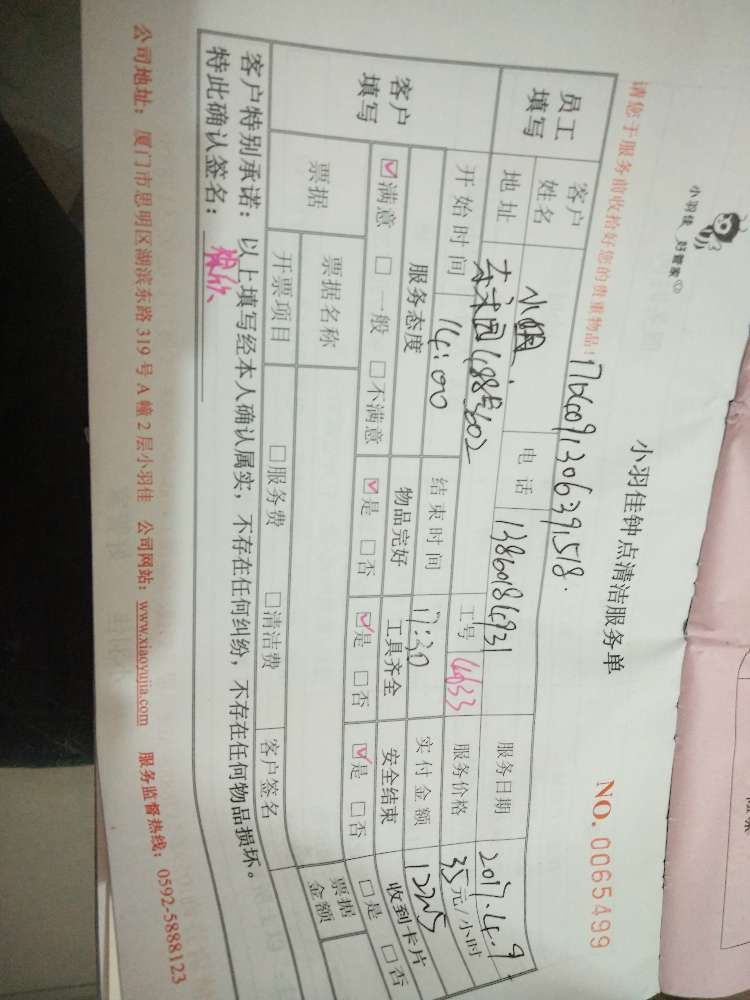 小羽佳 好管家
小羽佳钟点清洁服务单
NO. 0065499
请您于服务前收拾好您的贵重物品!
员工填写 客户姓名 小姐 电话 服务日期 2017.4.9
地址 485号602 工号 4633 服务价格 35元/小时
客户填写 开始时间 14:00 结束时间 17:30 实付金额
服务态度 物品完好 工具齐全 安全结束 收到卡片
☑满意 □一般 □不满意 ☑是 □否 ☑是 □否 ☑是 □否 □是 □否
票据 票据名称 票据金额
开票项目 □服务费 □清洁费 客户签名
客户特别承诺:以上填写经本人确认属实,不存在任何纠纷,不存在任何物品损坏。
特此确认签名:
公司地址:厦门市思明区湖滨东路319号A幢2层小羽佳 公司网站:www.xiaoyujia.com 服务监督热线:0592-5888123